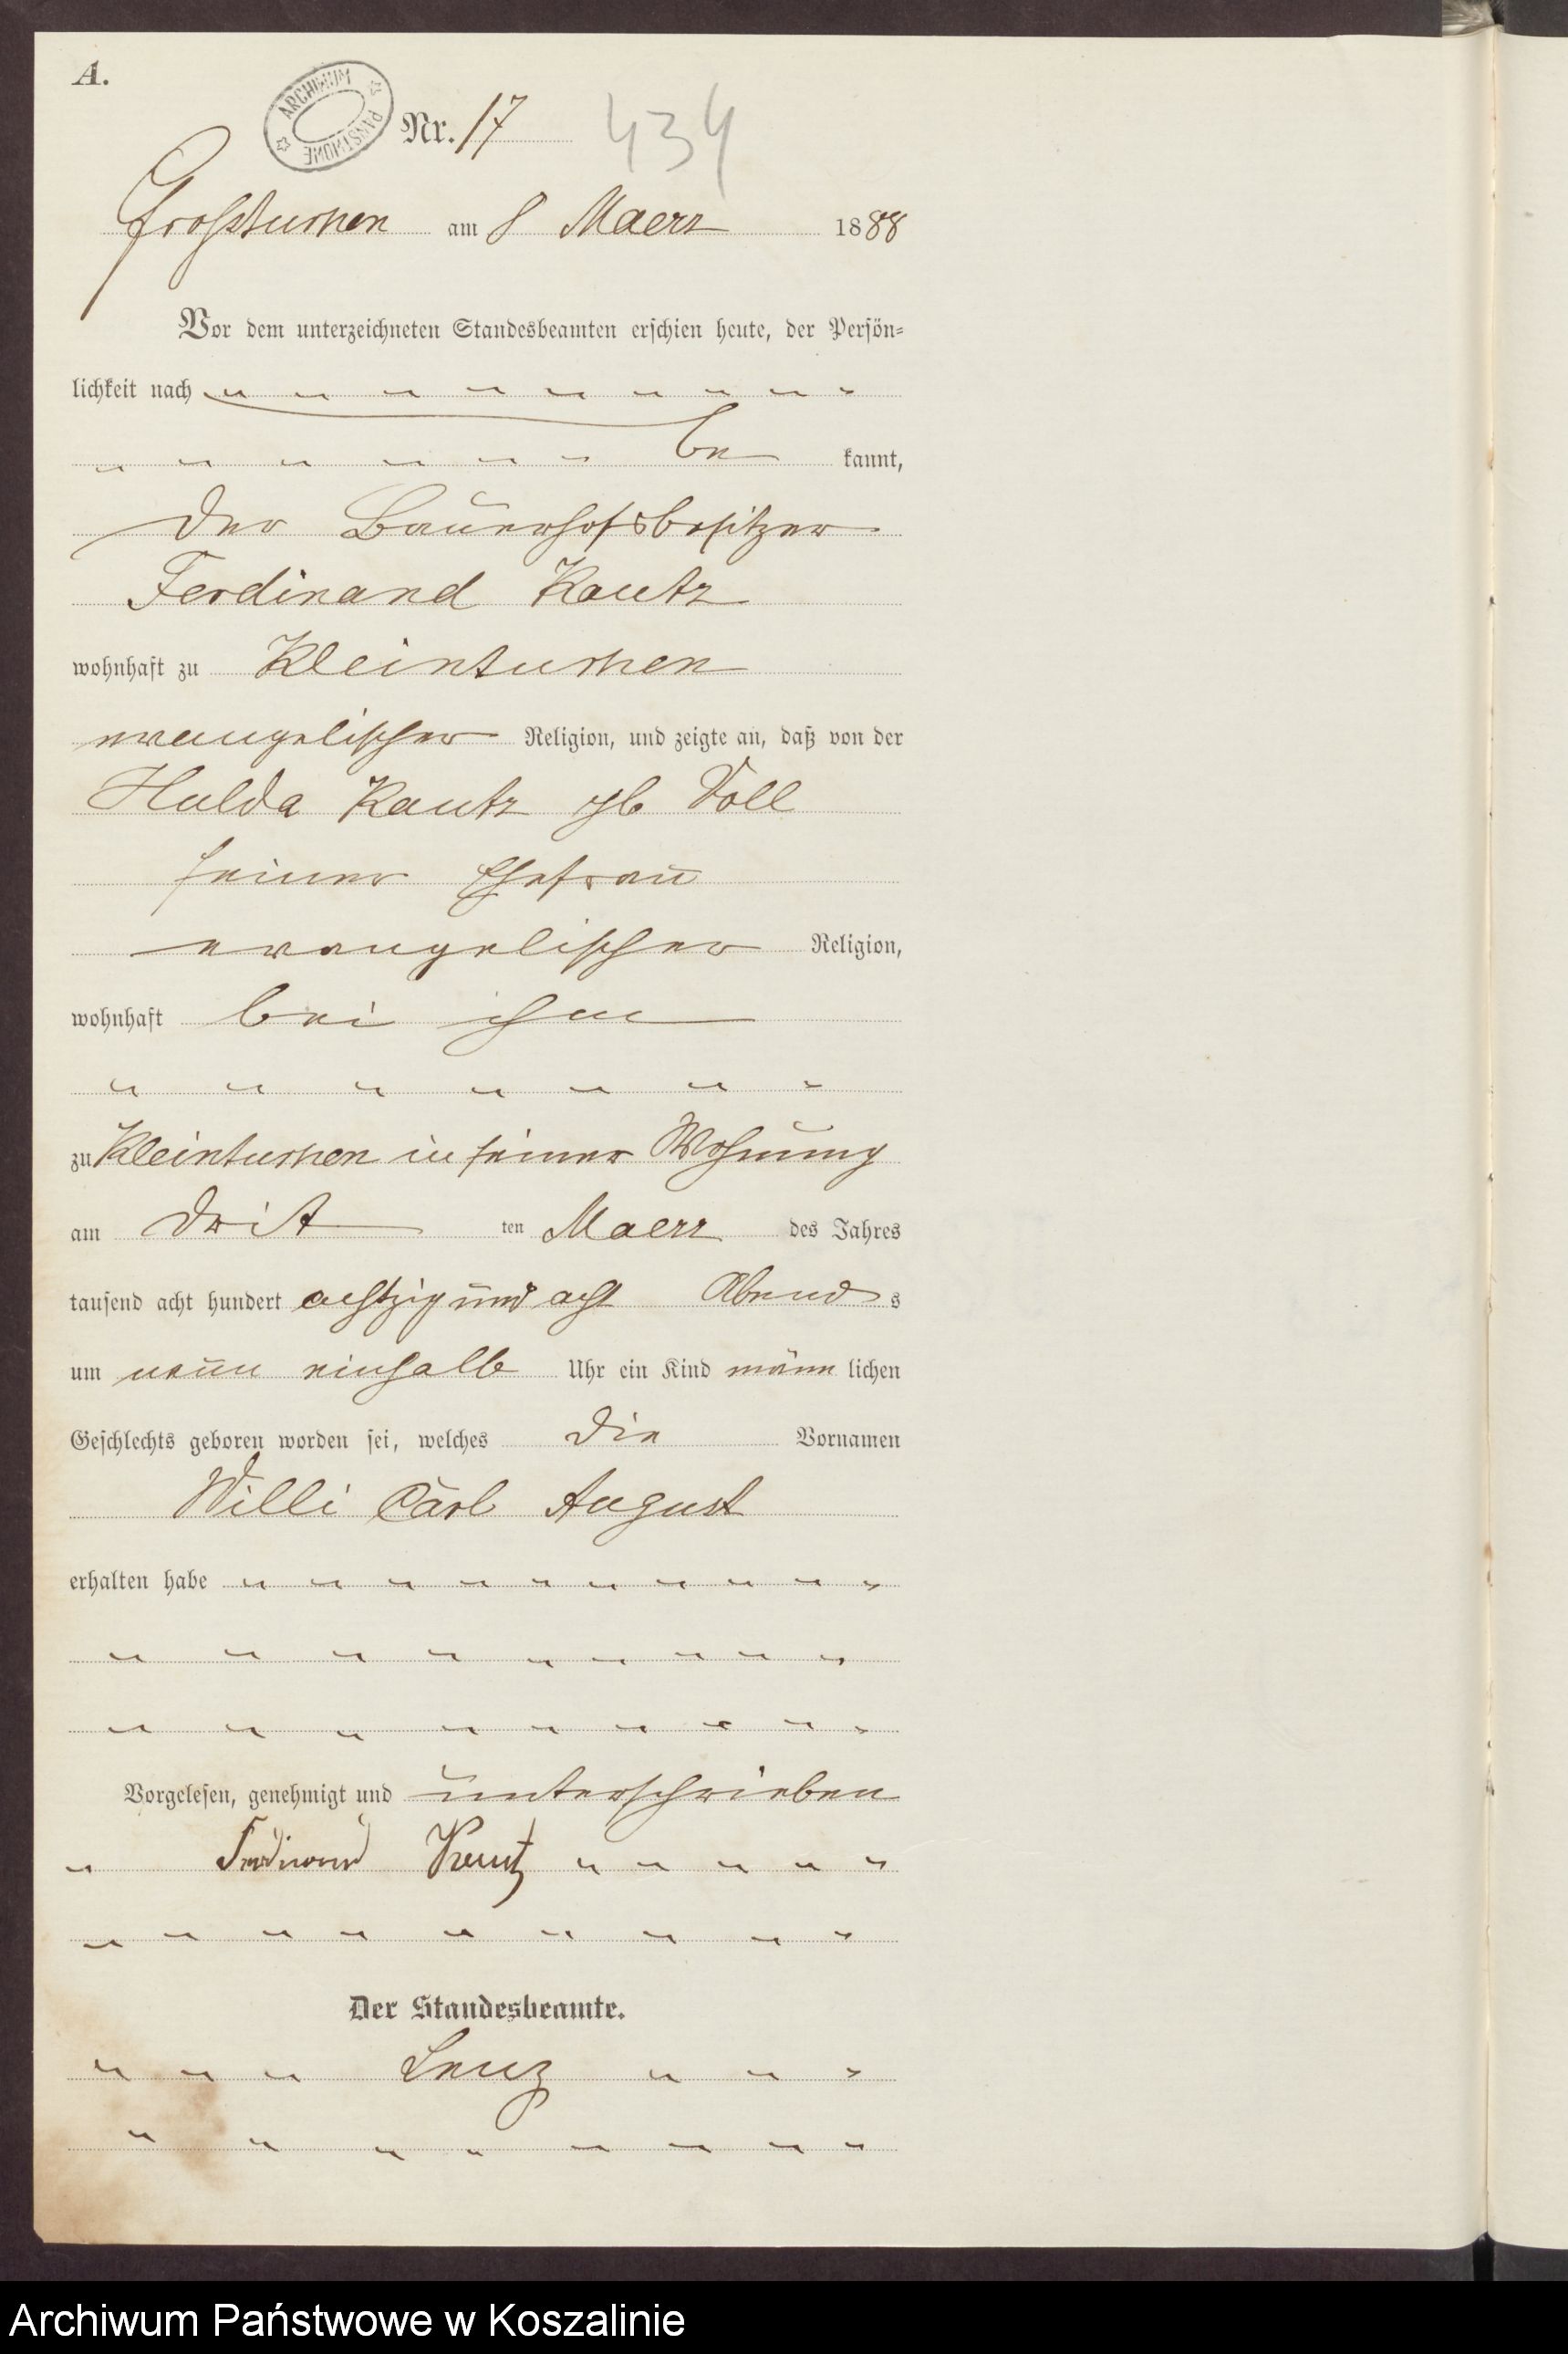 A.
ARCHIWUM PAŃSTWOWE
Nr. 17 434
Großtuchen am 8 Maerz 1888
Vor dem unterzeichneten Standesbeamten erschien heute, der Persön-
lichkeit nach
be kannt,
der Bauerhofsbesitzer
Ferdinand Kautz
wohnhaft zu Kleintuchen
evangelischer Religion, und zeigte an, daß von der
Hulda Kautz geb Voll
seiner Ehefrau
evangelischer Religion,
wohnhaft bei ihm
zu Kleintuchen in seiner Wohnung
am dritt ten Maerz des Jahres
tausend acht hundert achtzig und acht Abend s
um neun einhalb Uhr ein Kind männ lichen
Geschlechts geboren worden sei, welches die Vornamen
Willi Carl August
erhalten habe
Vorgelesen, genehmigt und unterschrieben
Ferdinand Kautz
Der Standesbeamte.
Lenz
Archiwum Państwowe w Koszalinie